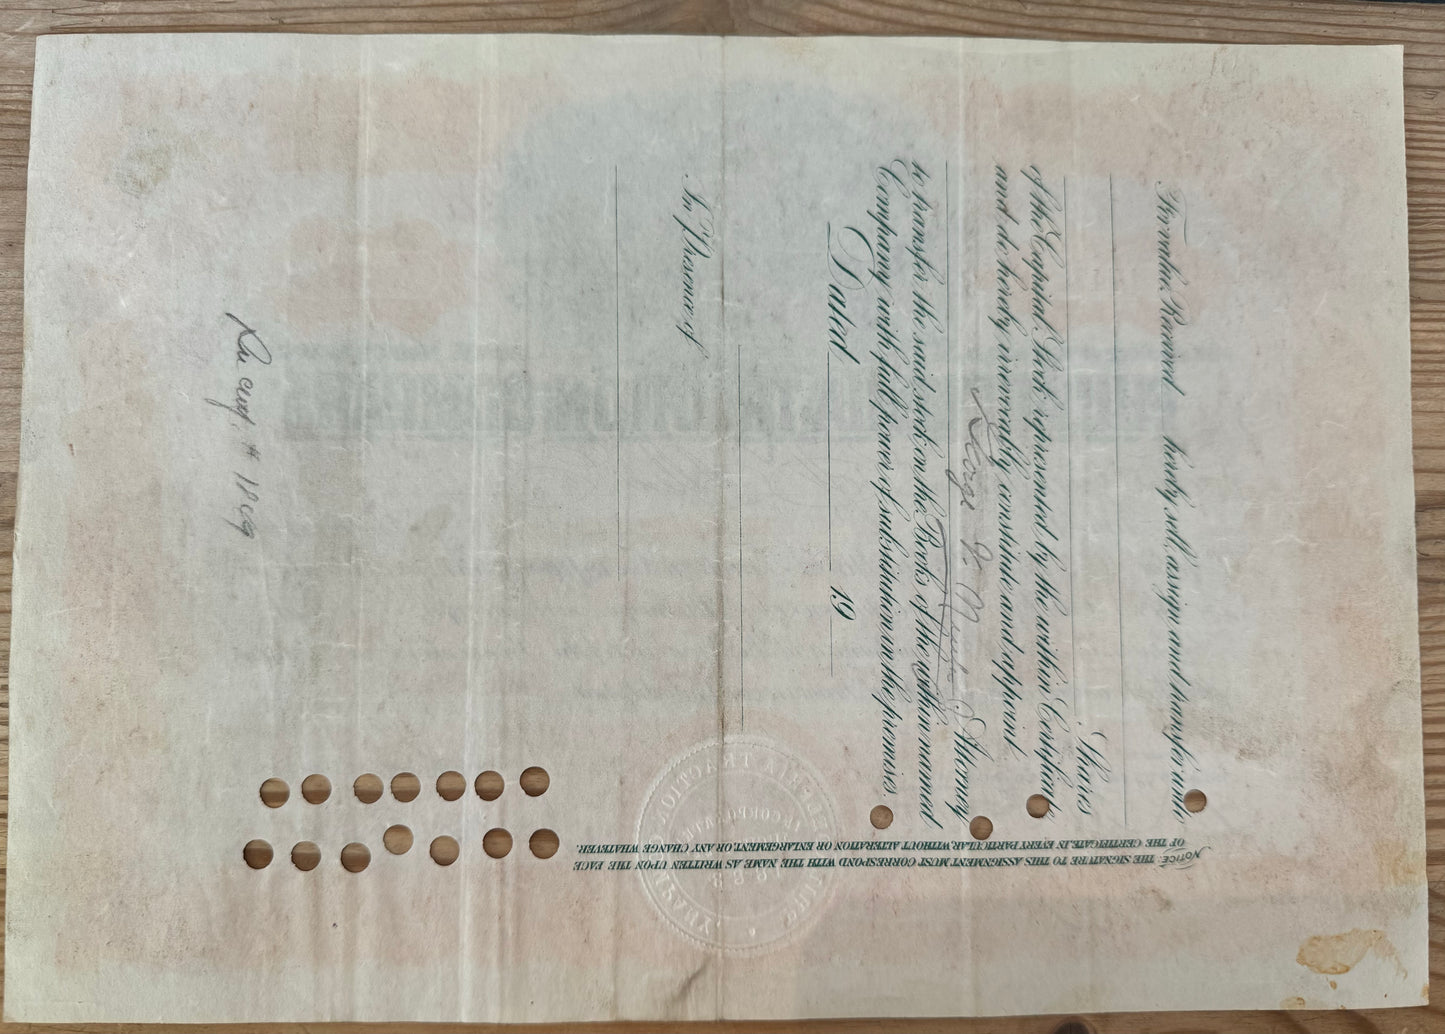 For value Received hereby sell, assign and transfer unto
Shares
of the Capital Stock represented by the within Certificate
and do hereby irrevocably constitute and appoint
George
Attorney
to transfer the said stock on the Books of the within named
Company with full power of substitution in the premises.
Dated 19
In Presence of
NOTICE: THE SIGNATURE TO THIS ASSIGNMENT MUST CORRESPOND WITH THE NAME AS WRITTEN UPON THE FACE
OF THE CERTIFICATE, IN EVERY PARTICULAR, WITHOUT ALTERATION OR ENLARGEMENT, OR ANY CHANGE WHATEVER.
TRACTION